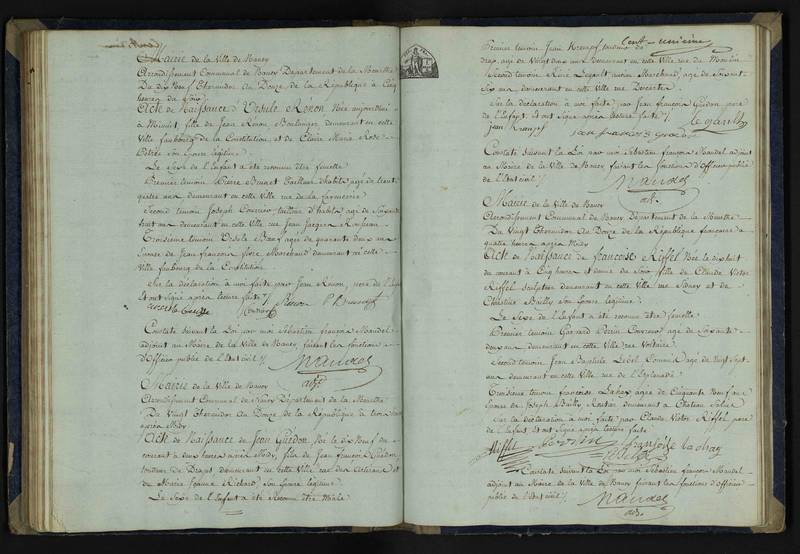 Mairie de la Ville de Nancy
Arrondissement Communal de Nancy Département de la Meurthe
Du dix Neuf Thermidor an Douze de la République à Cinq
heures du Soir
Acte de Naissance d'Ursule Renon Née aujourd'hui
à Minuit fille de Jean Renon, Boulanger, demeurant en cette
Ville faubourg de la Constitution, et de Claire Marie Rose
son Epouse légitime
Le Sexe de l'Enfant a été reconnu être femelle
Premier temoin Pierre Tailleur d'habits, age de trente
quatre ans demeurant en cette Ville rue de la
Second temoin Joseph tailleur d'habits, age de Soixante
huit ans demeurant en cette Ville rue Jean Jacques Rousseau
Troisieme temoin Ursule agée de quarante deux ans
Epouse de Jean francois Marchand demeurant en cette
Ville faubourg de la Constitution
Sur la déclaration à moi faite par Jean Renon, père de l'Enfant
Et ont Signé après lecture faite
Renon
Constaté Suivant la Loi par moi Sébastien françois Mandel
adjoint au Maire de la Ville de Nancy, faisant les fonctions
d'Officier public de l'Etat civil
Mandel
adj.
Mairie de la Ville de Nancy
Arrondissement Communal de Nancy Département de la Meurthe
Du Vingt Thermidor an Douze de la République à trois heures
après Midy
Acte de Naissance de Jean Guédon Né le dix Neuf du
courant à deux heures après Midy, fils de Jean françois Guédon
tondeur de Draps demeurant en cette Ville rue des Artisans et
de Marie Jeanne Richard, Son Epouse légitime
Le Sexe de l'Enfant a été Reconnu être Mâle
Cent-unieme
Premier temoin Jean Krempf tondeur de
drap, age de Vingt deux ans demeurant en cette Ville rue du Moulin
Second temoin René Marchand, age de Soixante
Six ans demeurant en cette Ville rue
Sur la déclaration à moi faite par Jean françois Guédon père
de l'Enfant Et ont Signé après lecture faite
jean Krempf
jean francois guedon
Constaté Suivant la Loi par moi Sébastien françois Mandel adjoint
au Maire de la Ville de Nancy faisant les fonctions d'Officier public
de l'Etat civil
Mandel
adj.
Mairie de la Ville de Nancy
Arrondissement Communal de Nancy Département de la Meurthe
Du Vingt Thermidor an Douze de la République française à
quatre heures après Midy
Acte de Naissance de françoise Riffel Née le dix huit
du courant à Cinq heures et demie du Soir fille de Claude Victor
Riffel Sculpteur demeurant en cette Ville rue Sidney et de
Christine Bailly Son Epouse légitime
Le Sexe de l'Enfant a été reconnu être femelle
Premier temoin age de Soixante
deux ans demeurant en cette Ville rue Voltaire
Second temoin Jean Baptiste Lebel age de Vingt Sept
ans demeurant en cette Ville rue de l'Esplanade
Troisieme temoin françoise Lahay agée de Cinquante Neuf ans
Epouse de Joseph Bailly Rentier demeurant à Chateau Salins
Sur la déclaration à moi faite par Claude Victor Riffel père
de l'Enfant Et ont Signé après lecture faite
Riffel
Constaté Suivant la Loi par moi Sébastien françois Mandel
adjoint au Maire de la Ville de Nancy faisant les fonctions d'Officier
public de l'Etat civil
Mandel
adj.